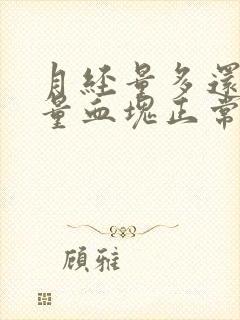 月经量多還
量血塊正常
顾雅